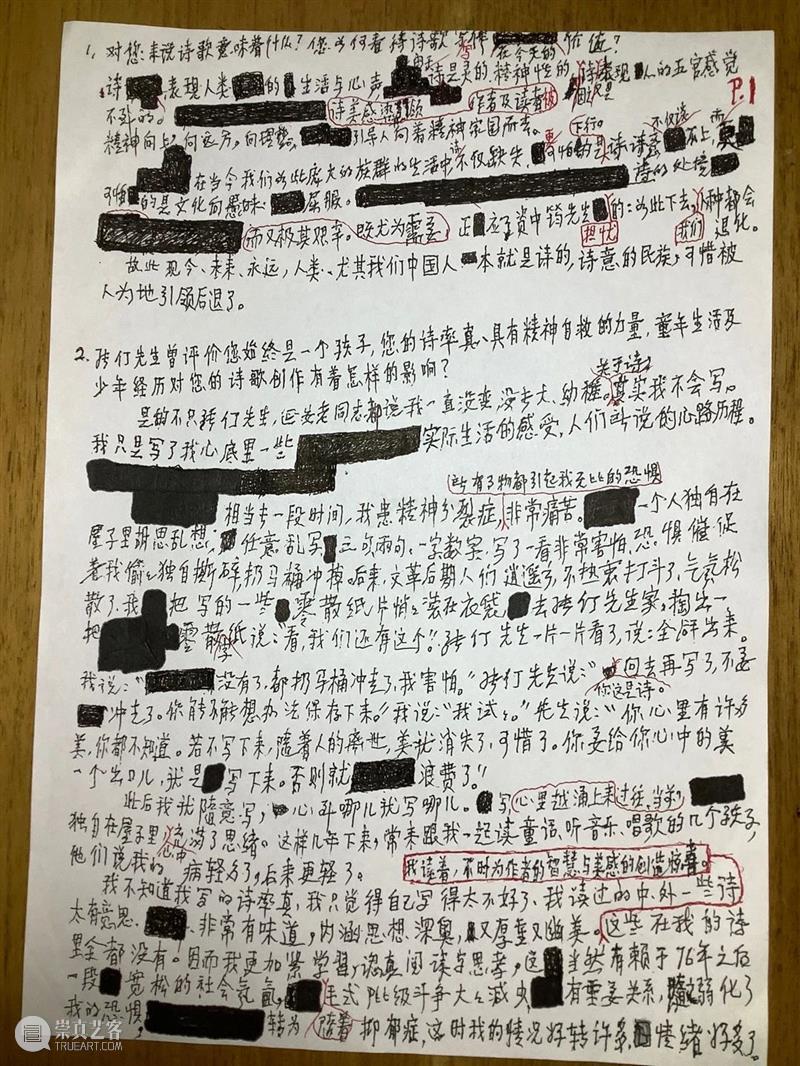 1、对您来说诗歌意味着什么？您如何看待诗歌写作在今天的价值？
诗 表现人类 的 生活与心声 诗是灵的，精神性的，诗表现 人的五官感觉
不到的。 诗美感 引领 作者及读者
P.1
精神向上，向远方， 引导人向着精神家园而去。 下行。 不仅
在当今我们如此庞大的族群的生活中，诗不仅缺失，更可怕的是
可怕的是文化向愚昧 屈服。 诗的处境
而又极其艰辛。既尤为需要，正应了资中筠先生担忧的：如此下去，人种都会
我们 退化。
故此现今、未来、永远，人类、尤其我们中国人本就是诗的，诗意的民族，可惜被
人为地引领后退了。
2、张仃先生曾评价您始终是一个孩子，您的诗率真、具有精神自救的力量，童年生活及
少年经历对您的诗歌创作有着怎样的影响？
关于诗
是的不只张仃先生，延安老同志都说我一直没变，没长大、幼稚。其实我不会写。
我只是写了我心底里一些 实际生活的感受，人们所说的心路历程。
所有事物都引起我无比的恐惧
相当长一段时间，我患精神分裂症，非常痛苦。 一个人独自在
屋子里胡思乱想， 任意乱写 三句两句、一字数字，写了一看非常害怕，恐惧催促
着我偷偷独自撕碎，扔马桶冲掉。后来，文革后期人们逍遥了，不热衷打斗了，气氛松
散了，我 把写的一些零散纸片悄悄装在衣袋 去张仃先生家。掏出一
把 零散纸说：“看，我们还有这个！”张仃先生一片一片看了，说：全拿出来。
我说：“ 没有了，都扔马桶冲走了，我害怕。”张仃先生说：“ 回去再写了，不要
你这是诗。
冲走了。你能不能想办法保存下来。”我说：“我试试。”先生说：“你心里有许多
美，你都不知道。若不写下来，随着人的离世，美就消失了，可惜了。你要给你心中的美
一个出口儿，就是 写下来。否则就 浪费了！”
此后我就随意写， 心到哪儿就写哪儿。 写心里越涌上来过往、当前，
独自在屋子里 满了思绪。这样几年下来，常来跟我一起读童话、听音乐、唱歌的几个孩子，
他们说我的 病轻多了，后来更轻了。
我读着，不时为作者的智慧与美感的创造惊喜。
我不知道我写的诗率真，我只觉得自己写得太不好了、我读过的中、外一些诗
太有意思， 非常有味道，内涵思想深奥，又厚重又幽美。这些在我的诗
里全都没有。因而我更加紧学习，认真阅读与思考，这 当然有赖于76年之后
一段 宽松的社会气氛， 阶级斗争大大减少， 有重要关系， 弱化了
我的恐惧， 转为 抑郁症，这时我的情况好转许多，情绪好多了。